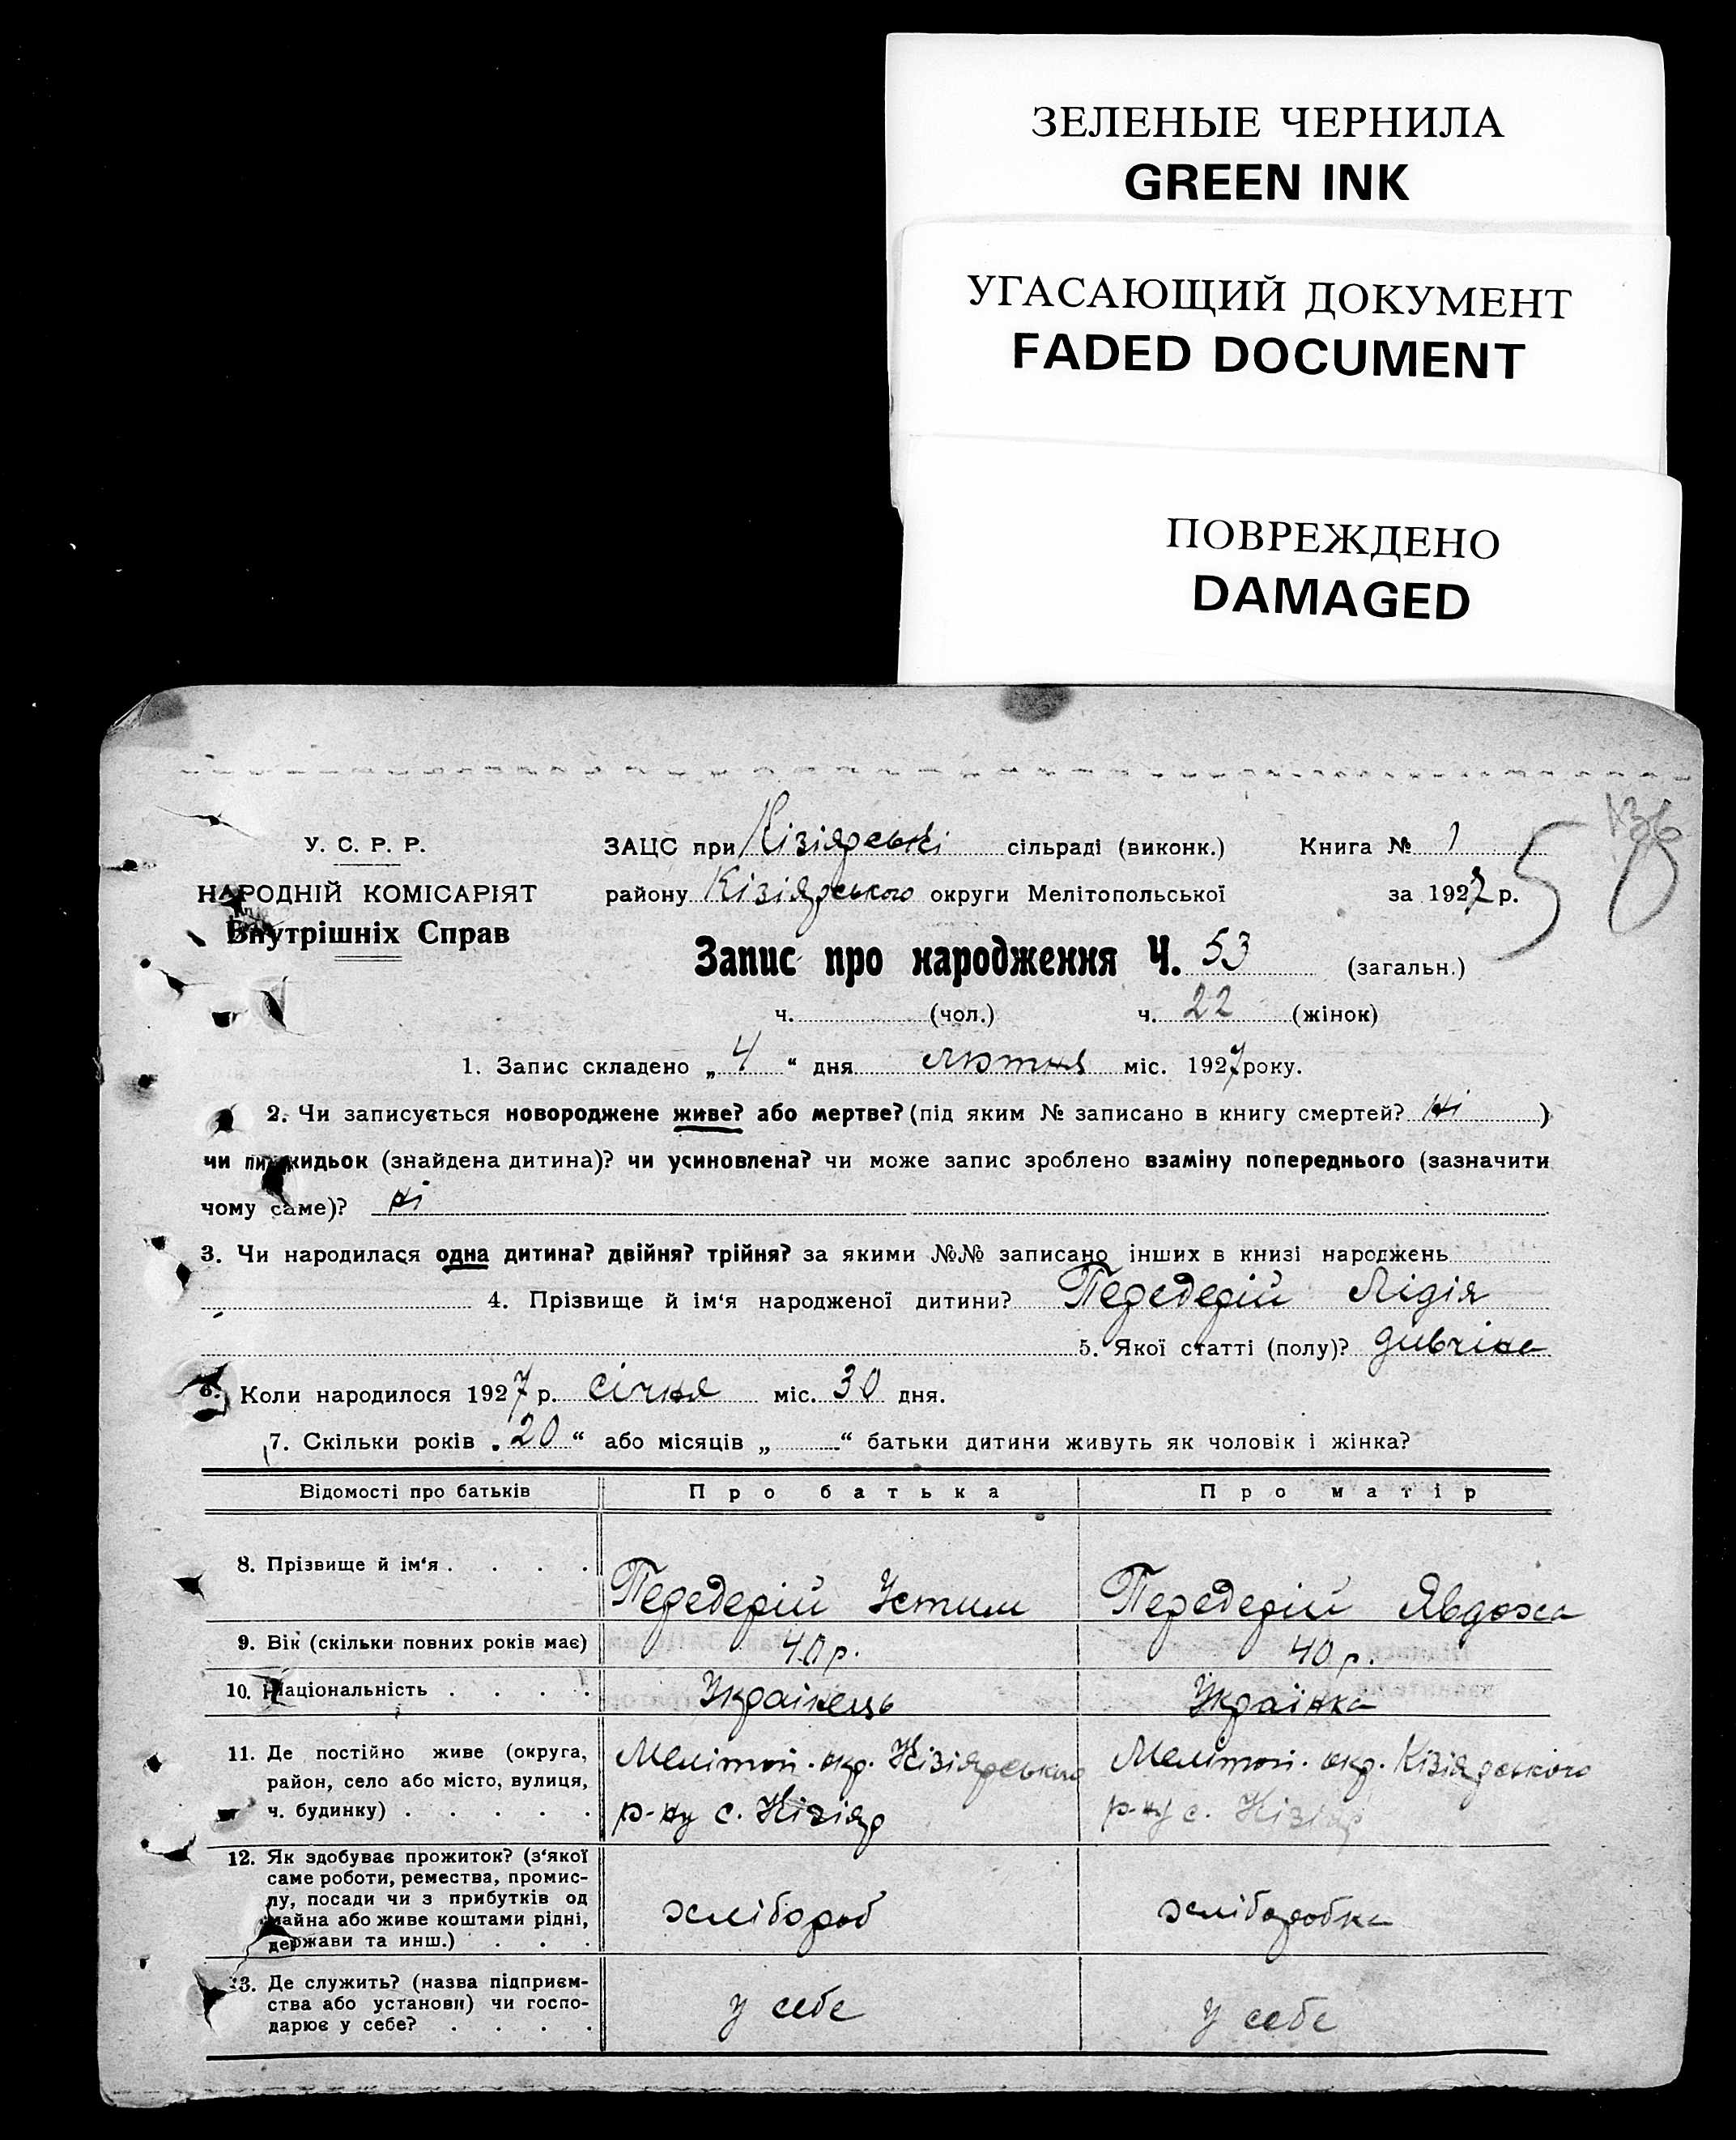 ЗЕЛЕНЫЕ ЧЕРНИЛА
GREEN INK
УГАСАЮЩИЙ ДОКУМЕНТ
FADED DOCUMENT
ПОВРЕЖДЕНО
DAMAGED
136
5
У. С. Р. Р.
НАРОДНІЙ КОМІСАРІЯТ
Внутрішніх Справ
ЗАЦС при Кізіярські сільраді (виконк.) Книга № 1
району Кізіярського округи Мелітопольської за 1927 р.
Запис про народження Ч. 53 (загальн.)
ч. (чол.) ч. 22 (жінок)
1. Запис складено „ 4 “ дня лютня міс. 1927 року.
2. Чи записується новороджене живе? або мертве? (під яким № записано в книгу смертей? ні )
чи підкидьок (знайдена дитина)? чи усиновлена? чи може запис зроблено взаміну попереднього (зазначити
чому саме)? ні
3. Чи народилася одна дитина? двійня? трійня? за якими №№ записано інших в книзі народжень
4. Прізвище й ім‘я народженої дитини? Передерій Лідія
5. Якої статті (полу)? дивчина
6. Коли народилося 1927 р. січня міс. 30 дня.
7. Скільки років „ 20 “ або місяців „ “ батьки дитини живуть як чоловік і жінка?
Відомості про батьків Про батька Про матір
8. Прізвище й ім‘я . . . . Передерій Устим Передерій Явдоха
9. Вік (скільки повних років має) 40 р. 40 р.
10. Національність . . . . Украінець Українка
11. Де постійно живе (округа,
район, село або місто, вулиця,
ч. будинку) . . . . .
Мелітоп. окр. Кізіярського
р-ну с. Кізіяр
Мелітоп. окр. Кізіярського
р-ну с. Кізіяр
12. Як здобуває прожиток? (з‘якої
саме роботи, ремества, промис-
лу, посади чи з прибутків од
майна або живе коштами рідні,
держави та инш.) . . .
хлібороб
хліборобка
13. Де служить? (назва підприєм-
ства або установи) чи госпо-
дарює у себе? . . . .
у себе
у себе